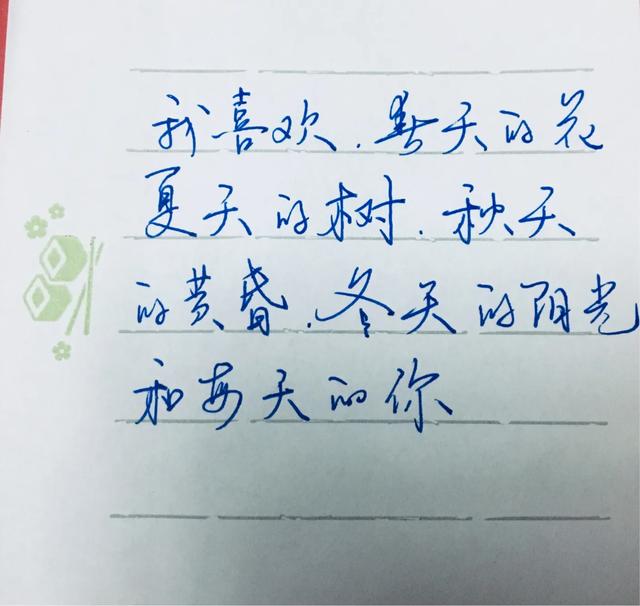 我喜欢.春天的花
夏天的树.秋天
的黄昏.冬天的阳光
和每天的你